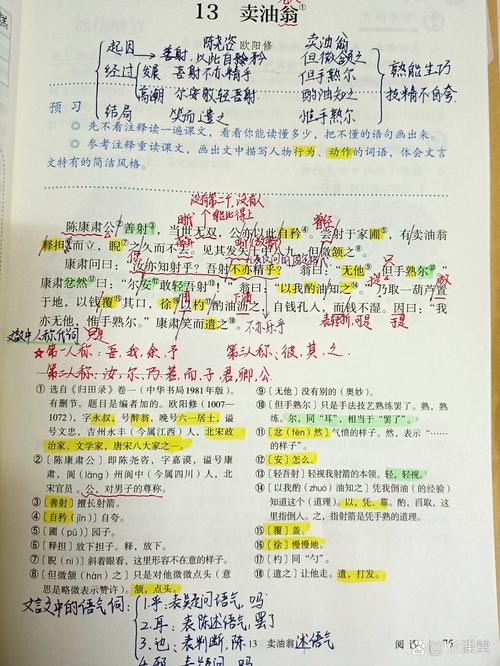 13 卖油翁①
欧阳修
起因 善射，以此自矜 陈尧咨 卖油翁 但微颔之
经过 发展 吾射不亦精乎 但手熟尔 熟能生巧
高潮 尔安敢轻吾射 酌油知之 技精不自夸
结局 笑而遣之 惟手熟尔
预习
◎ 先不看注释读一遍课文，看看你能读懂多少，把不懂的语句画出来。
◎ 参考注释重读课文，画出文中描写人物行为、动作的词语，体会文言
文特有的简洁风格。
没有第二个，没有人
能比得上
陈康肃公②善射③，当世无双，公亦以此自矜④。尝射于家圃⑤，有卖油翁
释担⑥而立，睨⑦之久而不去。见其发矢十中八九，但微颔之⑧。
康肃问曰：“汝亦知射乎？吾射不亦精乎？”翁曰：“无他⑨，但手熟尔⑩。”
康肃忿然⑪曰：“尔安⑫敢轻吾射⑬！”翁曰：“以我酌油知之⑭。”乃取一葫芦置
于地，以钱覆⑮其口，徐⑯以杓⑰酌油沥之，自钱孔入，而钱不湿。因曰：“我
亦无他，惟手熟尔。”康肃笑而遣之⑱。
不亦乐乎
文言文中人称代词
☆第一人称：吾、我、余、予 第三人称：彼、其、之
第二人称：汝、尔、乃、若、而、子、君、卿、公
① 选自《归田录》卷一（中华书局1981年版）。
有删节。题目是编者加的。欧阳修（1007—
1072），字永叔，号醉翁，晚号六一居士，谥
号文忠，吉州永丰（今属江西）人，北宋政
治家、文学家，唐宋八大家之一。
② 〔陈康肃公〕即陈尧咨，字嘉谟，谥号康
肃，阆（làng）州阆中（今属四川）人，北
宋官员。公，对男子的尊称。
③ 〔善射〕擅长射箭。
④ 〔自矜（jīn）〕自夸。
⑤ 〔圃（pǔ）〕园子。
⑥ 〔释担〕放下担子。释，放下。
⑦ 〔睨（nì）〕斜着眼看，这里形容不在意的样子。
⑧ 〔但微颔（hàn）之〕只是对他微微点头（意
思是略微表示赞许）。颔，点头。
⑨ 〔无他〕没有别的（奥妙）。
⑩ 〔但手熟尔〕只是手法技艺熟练罢了。熟，熟
练。尔，同“耳”，相当于“罢了”。
⑪ 〔忿（fèn）然〕气愤的样子。然，表示“……
的样子”。
⑫ 〔安〕怎么。
⑬ 〔轻吾射〕轻视我射箭的本领。轻，轻视。
⑭ 〔以我酌（zhuó）油知之〕凭我倒油（的经验）
知道这个（道理）。以，凭、靠。酌，舀取，这
里指倒入。之，指射箭是凭手熟的道理。
⑮ 〔覆〕盖。
⑯ 〔徐〕慢慢地。
⑰ 〔杓〕同“勺”。
⑱ 〔遣之〕让他走。遣，打发。
文言文中的语气词：
1.乎：表疑问语气，吗
2.耳：表陈述语气，罢了
3.也：表判断，陈述语气
13 卖油翁
阅读 75